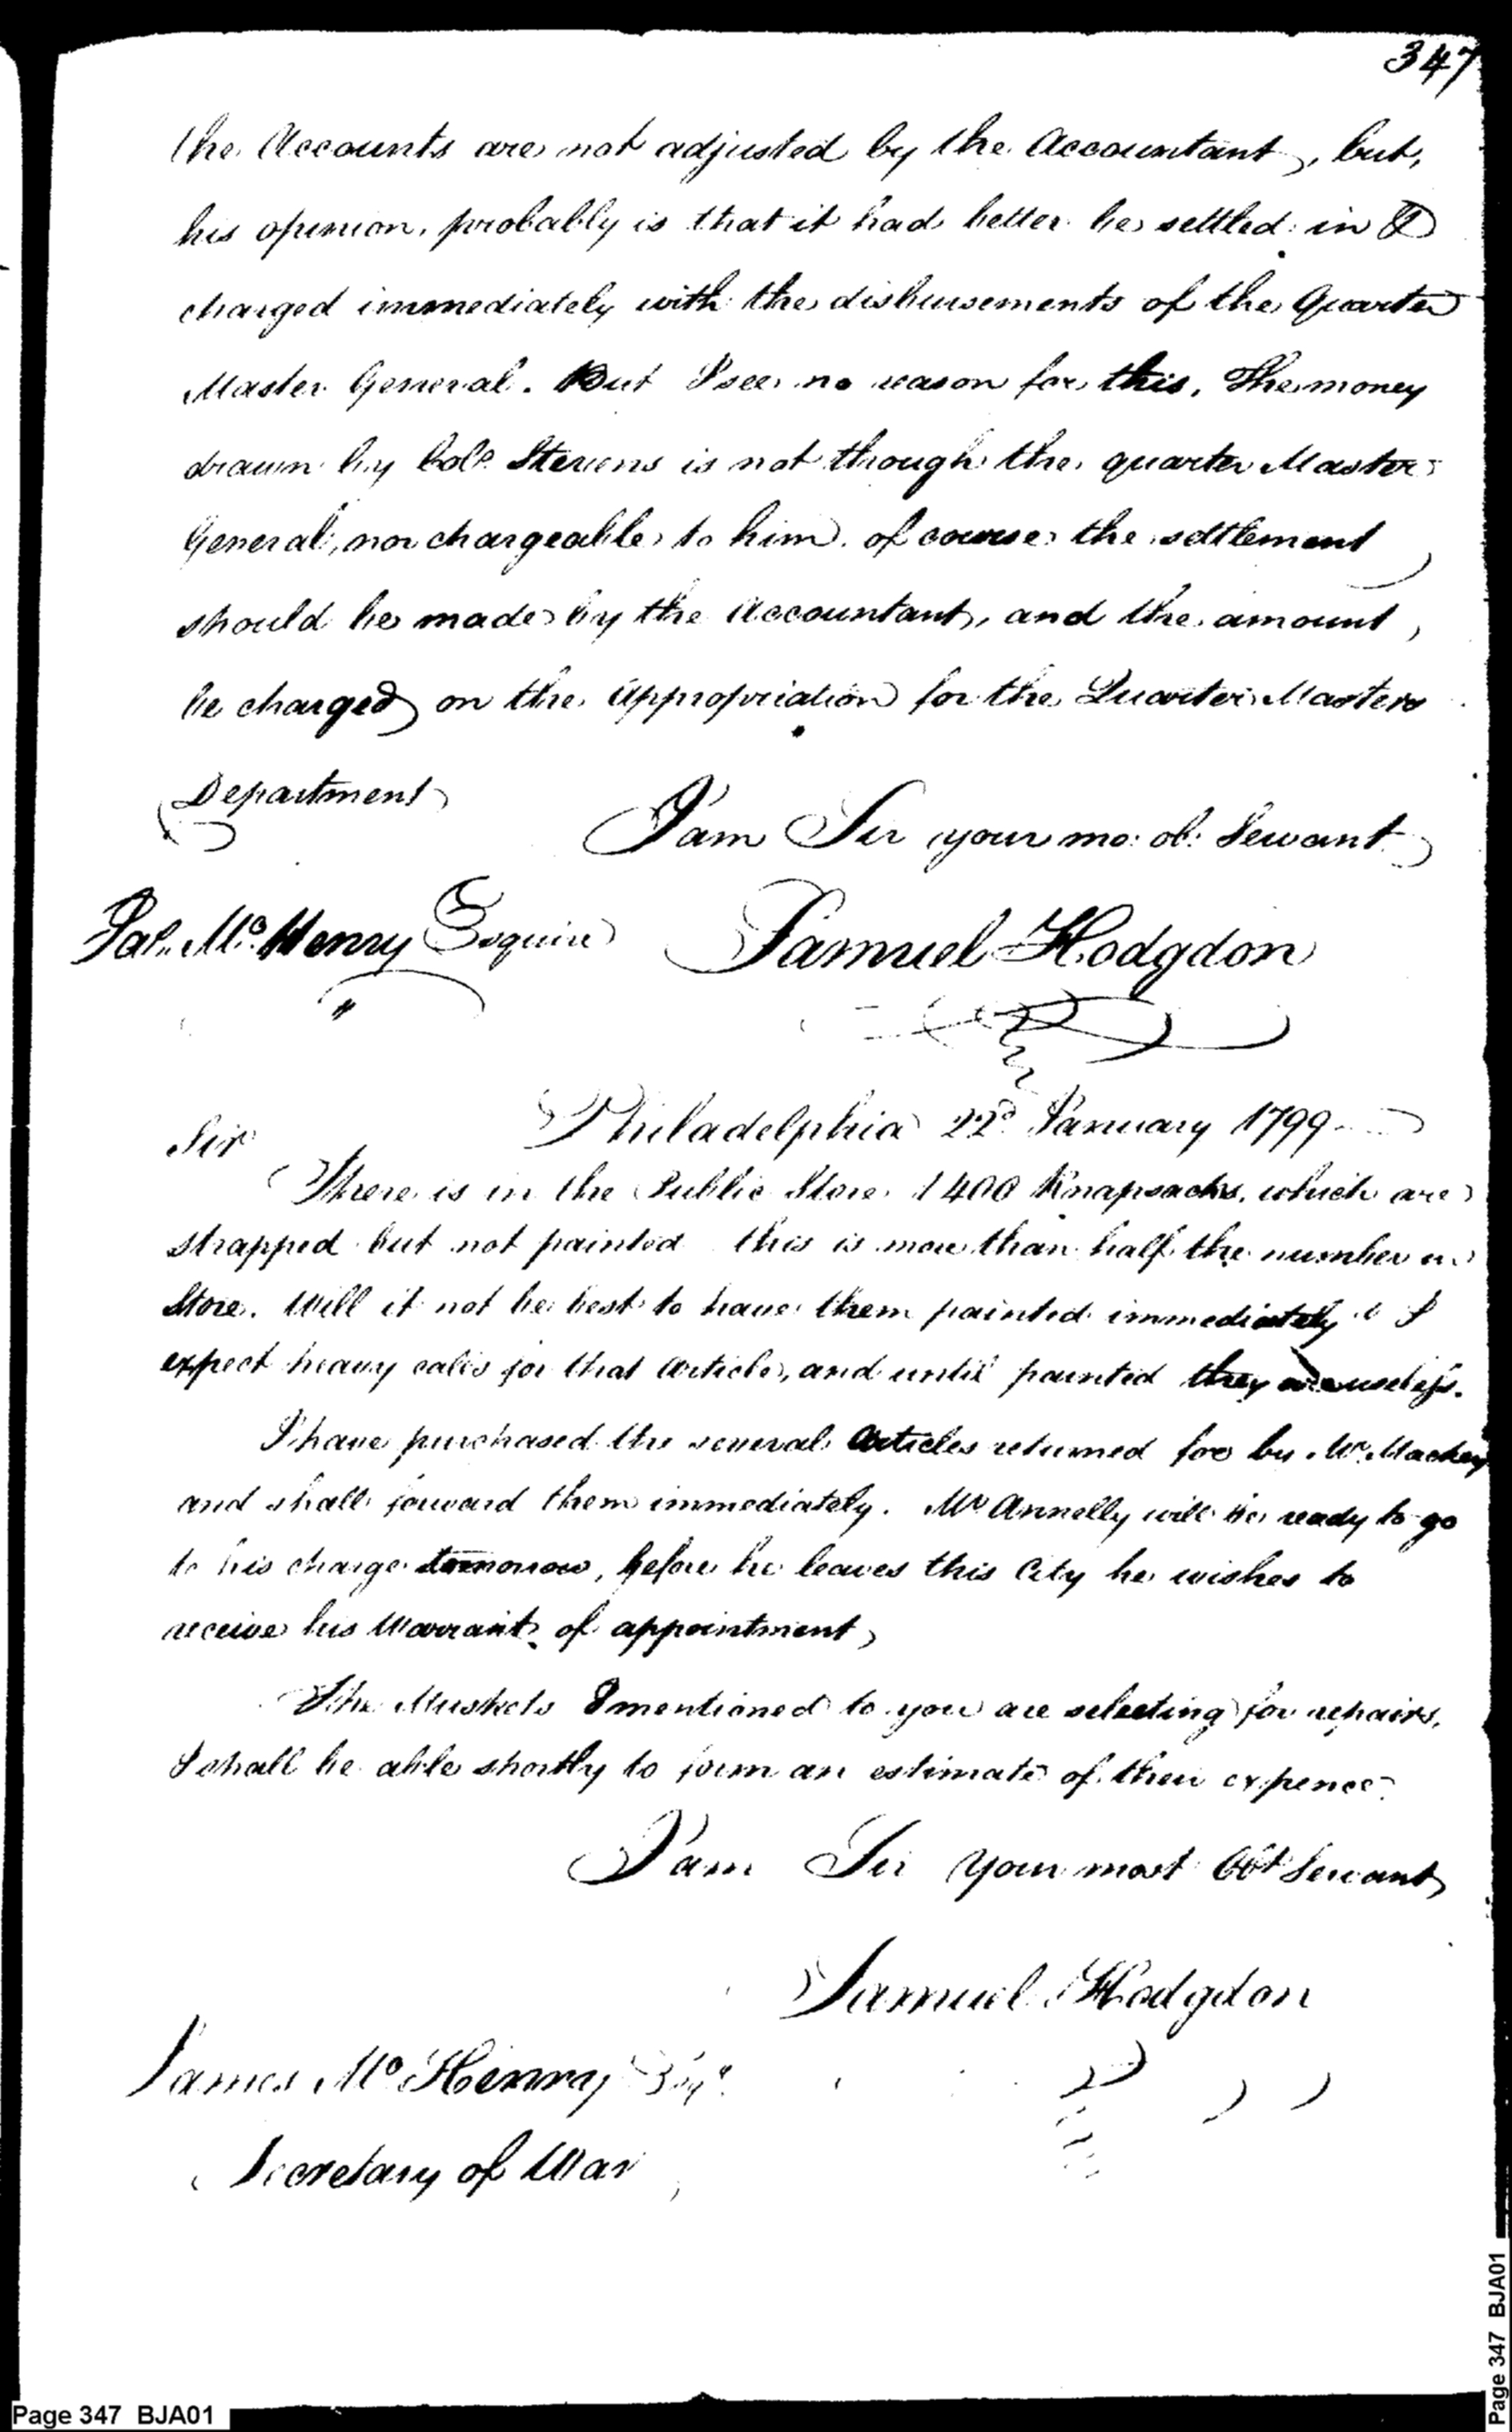 347
the Accounts are not adjusted by the Accountant, but,
his opinion, probably is that it had better be settled in &
charged immediately with the disbursements of the Quarter
Master General. But I see no reason for this. The money
drawn by Colo. Stevens is not through the quarter Master
General, nor chargeable to him. of course the settlement
should be made by the Accountant, and the amount,
be charged on the Appropriation for the Quarter Masters
Department
I am Sir your mo: ob: Servant
Jas. Mc. Henry Esquire Samuel Hodgdon
Philadelphia 22d January 1799
Sir
There is in the Public Store 1400 Knapsacks, which are
strapped but not painted this is more than half the number in
Store. Will it not be best to have them painted immediately? I
expect heavy calls for that Article, and until painted they are useless.
I have purchased the several Articles returned for by Mr. Mackey
and shall forward them immediately. Mr Annelly will be ready to go
to his charge tomorrow, before he leaves this City he wishes to
receive his Warrant of appointment,
The Muskets I mentioned to you are selecting for repairs,
I shall be able shortly to form an estimate of their expence
I am Sir Your most Obt Servant
Samuel Hodgdon
James Mc Henry Esqr.
Secretary of War
Page 347 BJA01
Page 347 BJA01